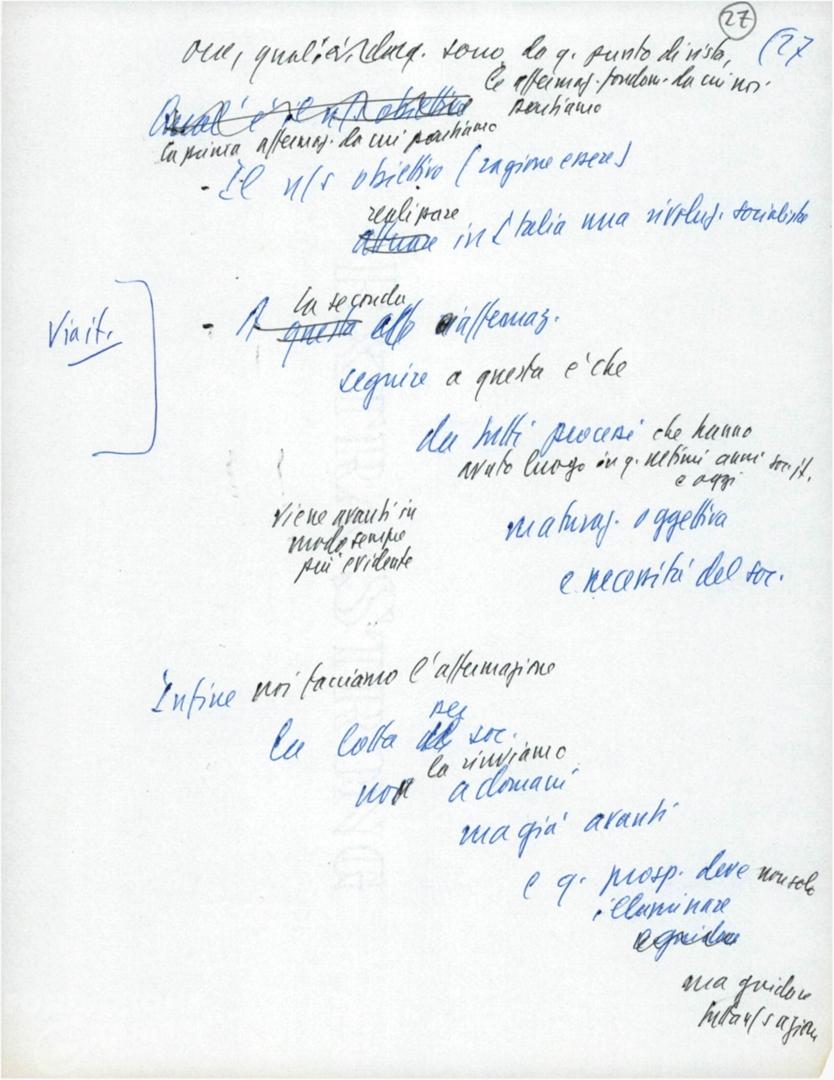 27
(27
Ora, quali è, dunq. sono, da q. punto di vista,
le affermaz. fondam. da cui noi
partiamo
Qual è il n/s obiettivo
la prima affermaz. da cui partiamo
- Il n/s obiettivo (ragione essere)
realizzare
attuare in Italia una rivoluz. socialista
Viait.
la seconda
- A questa affermaz.
seguire a questa è che
da tutti processi che hanno
avuto luogo in q. ultimi anni soc. it.
e oggi
viene avanti in
modo sempre
più evidente
maturaz. oggettiva
e necessità del soc.
Infine noi facciamo l'affermazione
la lotta per soc.
la rinviamo
non a domani
ma già avanti
e q. prosp. deve non solo
illuminare
e guidare
ma guidare
tutta n/s azione